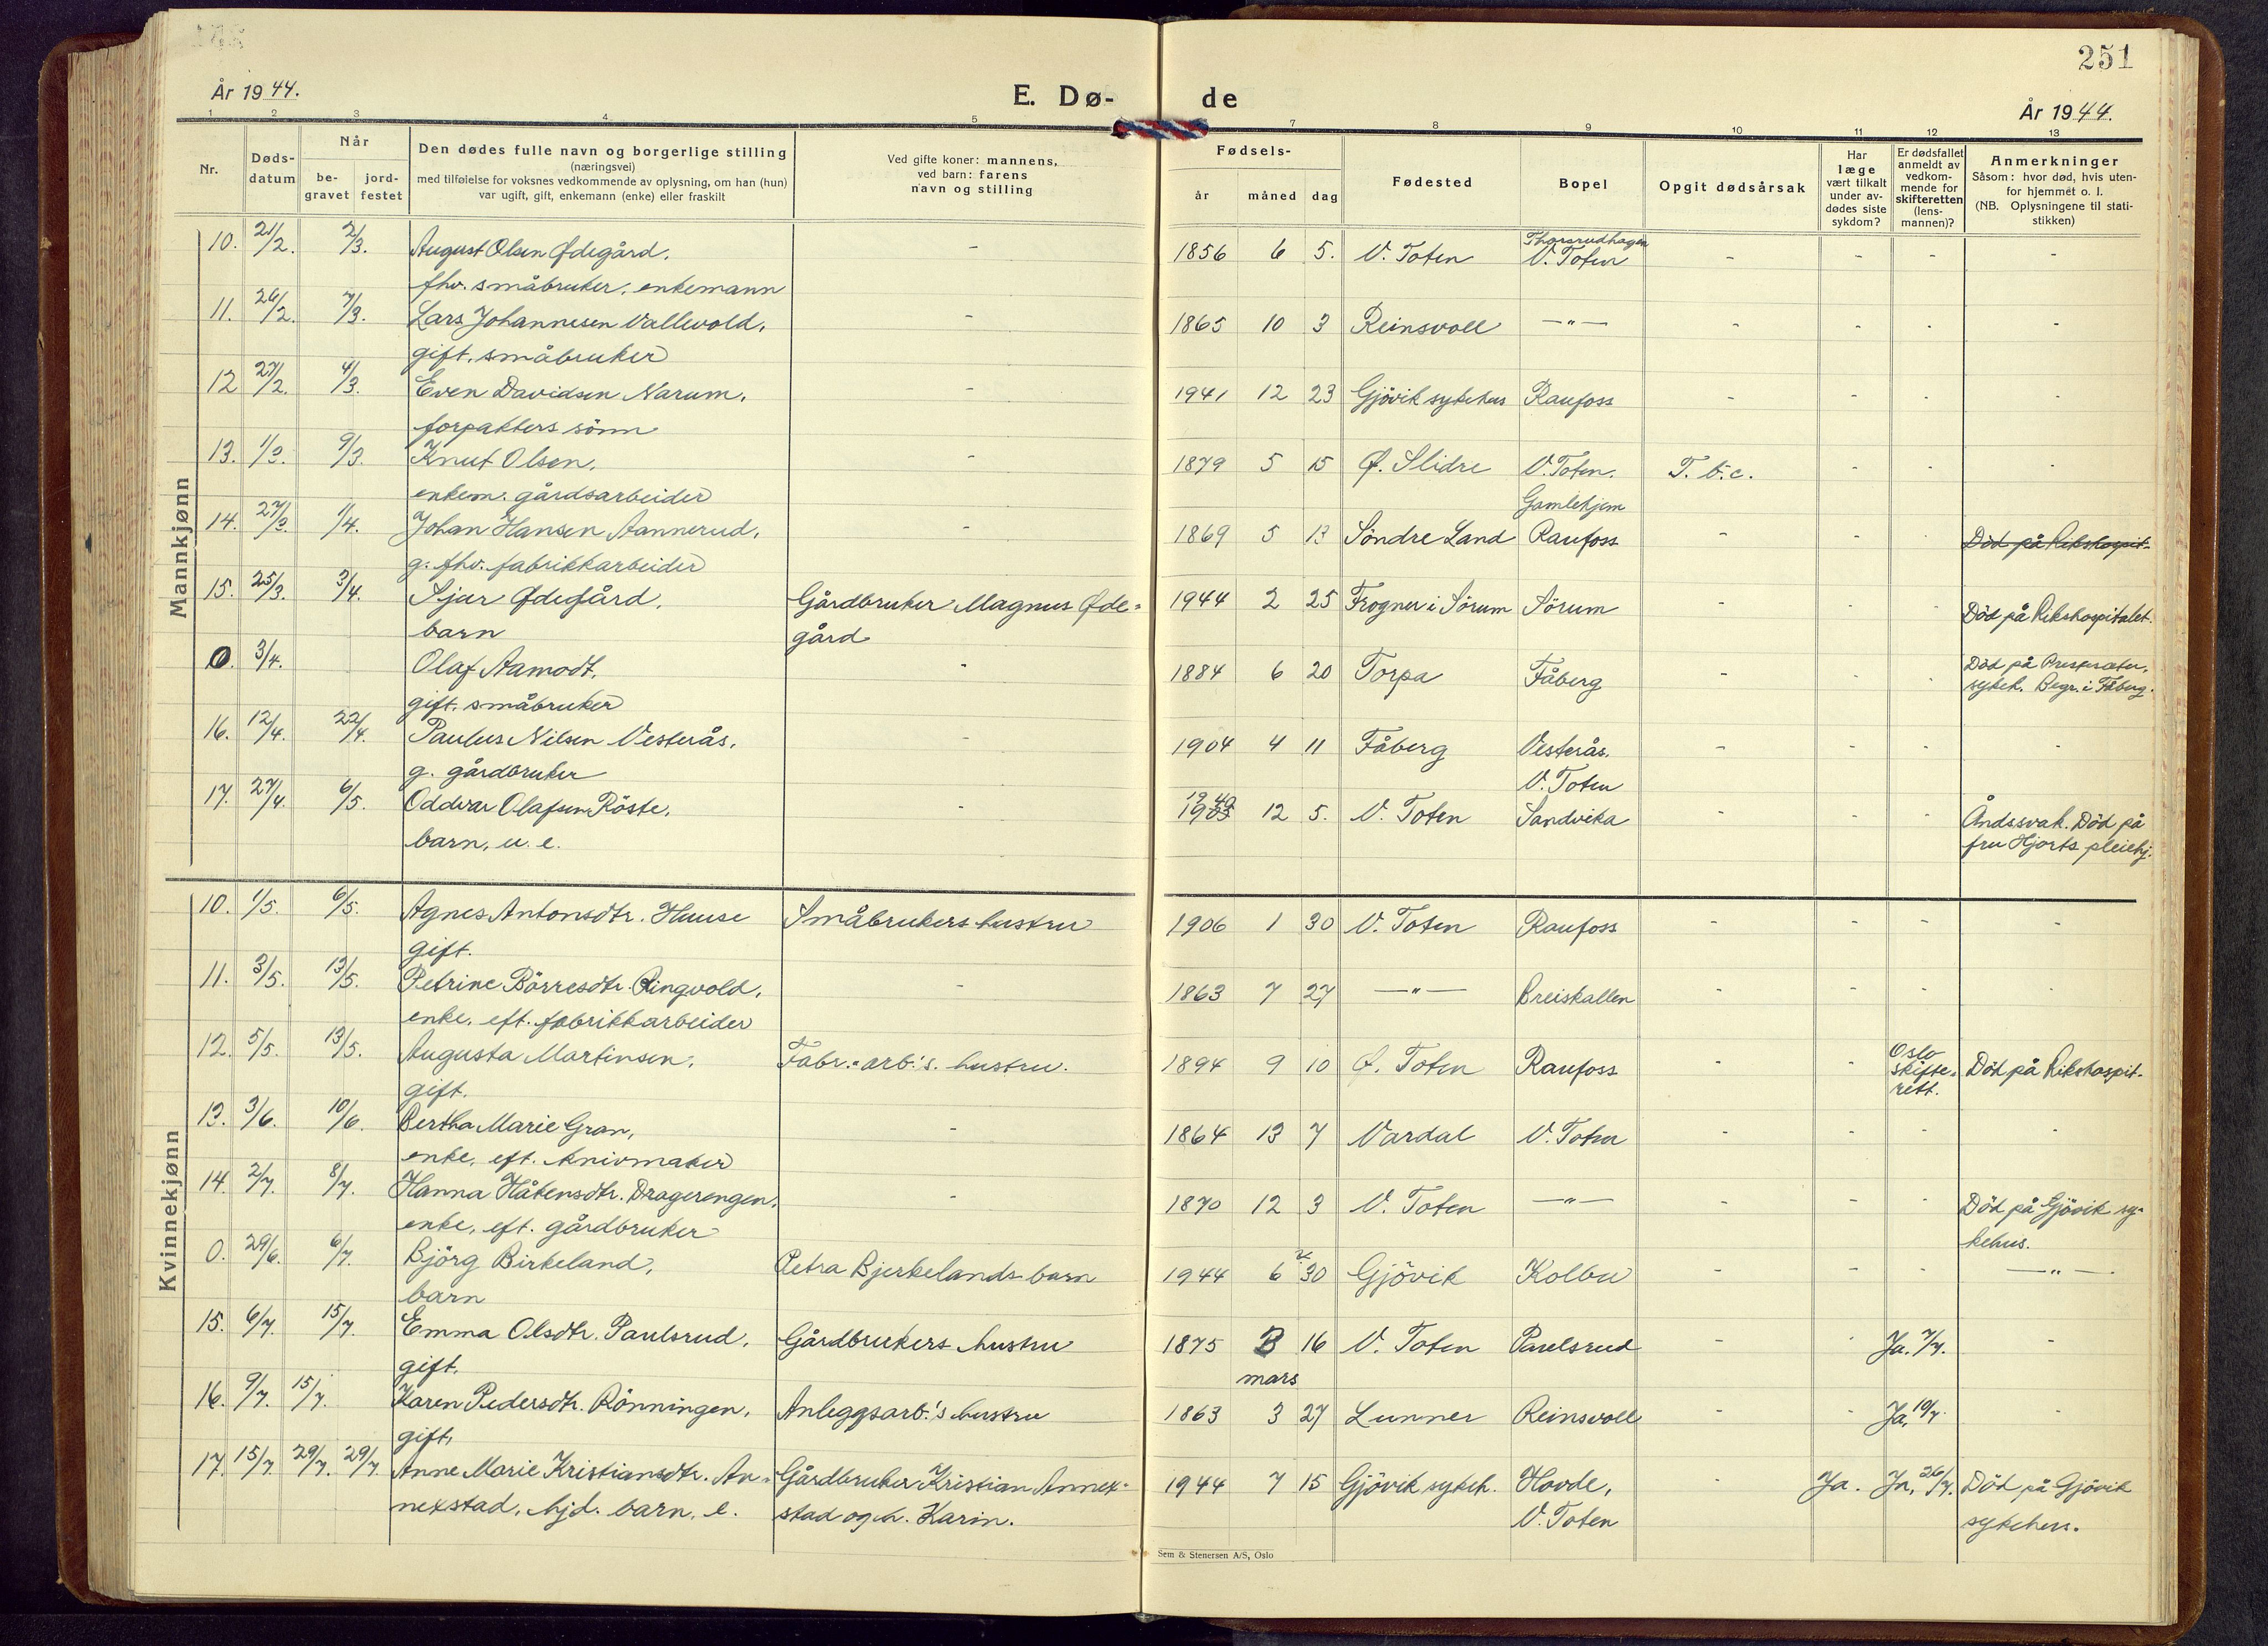 251
År 1944.
E. Dø-
de
År 1944.
1 2 3 4 5 7 8 9 10 11 12 13
Nr.
Døds-
datum
Når
be-
gravet
jord-
festet
Den dødes fulle navn og borgerlige stilling
(næringsvei)
med tilføielse for voksnes vedkommende av oplysning, om han (hun)
var ugift, gift, enkemann (enke) eller fraskilt
Ved gifte koner: mannens,
ved barn: farens
navn og stilling
Fødsels-
år måned dag
Fødested
Bopel
Opgit dødsårsak
Har
læge
vært tilkalt
under av-
dødes siste
sykdom?
Er dødsfallet
anmeldt av
vedkom-
mende for
skifteretten
(lens-
mannen)?
Anmerkninger
Såsom: hvor død, hvis uten-
for hjemmet o. l.
(NB. Oplysningene til stati-
stikken)
Mannkjønn
10. 21/2. 2/3. August Olsen Ødegård, - 1856 6 5. V. Toten Thorsrudhagen V. Toten - - - -
fhv. småbruker, enkemann
11. 26/2. 7/3. Lars Johannesen Vallevold, - 1865 10 3 Reinsvoll —"— - - - -
gift, småbruker
12 27/2. 4/3. Even Davidsen Narum, - 1941 12 23 Gjövik sykehus Raufoss - - - -
forpakters sönn
13. 1/3. 9/3. Knut Olsen, - 1879 5 15 Ø. Slidre V. Toten. T.b.c. - - -
enkem. gårdsarbeider Gamlehjem
14. 27/3. 1/4. Johan Hansen Aannerud, - 1869 5 13 Söndre Land Raufoss - - - Död på Rikshospit-
g. fhv. fabrikkarbeider
15. 25/3. 3/4. Ajar Ødegård, Gårdbruker Magnus Øde- 1944 2 25 Frogner i Sörum Sörum - - - Död på Rikshospitalet.
barn gård
0. 3/4. Olaf Aamodt, - 1884 6 20 Torpa Fåberg - - Död på Presteseter,
gift, småbruker sykeh. Begr. i Fåberg.
16. 12/4. 22/4. Paulus Nilsen Vesterås, - 1904 4 11 Fåberg Vesterås. - - - -
g. gårdbruker V. Toten
17. 27/4. 6/5. Oddvar Olafsen Röste, - 1940 12 5. V. Toten Sandvika - - - Åndssvak. Död på
barn, u. e. fru Hjorts pleiehj.
Kvinnekjønn
10. 1/5. 6/5. Agnes Antonsdtr. Huuse Småbrukers hustru 1906 1 30 V. Toten Raufoss - - - -
gift.
11. 3/5. 13/5. Petrine Börresdtr. Ringvold, - 1863 7 27 —"— Breiskallen - - - -
enke, eft. fabrikkarbeider
12. 5/5. 13/5. Augusta Martinsen, Fabr.-arb.'s. hustru. 1894 9 10 Ø. Toten Raufoss - - Oslo skifte-rett. Död på Rikshospit-
gift.
13. 3/6. 10/6. Bertha Marie Gran, - 1864 13 7 Vardal V. Toten - - - -
enke, eft. knivmaker
14. 2/7. 8/7. Hanna Håkensdtr. Dragerengen, - 1870 12 3 V. Toten —"— - - - Död på Gjövik sy-
enke, eft. gårdbruker kehus.
0. 29/6. 6/7. Björg Birkeland, Petra Bjerkelands barn 1944 6 30 Gjövik Kolbu - - - —"—
barn
15. 6/7. 15/7. Emma Olsdtr. Paulsrud, Gårdbrukers hustru 1875 3 16 V. Toten Paulsrud - - Ja. 7/7. -
gift. mars
16. 9/7. 15/7. Karen Pedersdtr. Rönningen, Anleggsarb.'s hustru 1863 3 27 Lunner Reinsvoll - - Ja, 10/7. -
gift,
17. 15/7. 29/7. 29/7 Anne Marie Kristiansdtr. An- Gårdbruker Kristian Annex- 1944 7 15 Gjövik sykeh. Hovde, - Ja. Ja, 26/7. Död på Gjövik
nexstad, hjd. barn, e. stad og h. Karin. V. Toten sykehus.
Sem & Stenersen A/S, Oslo